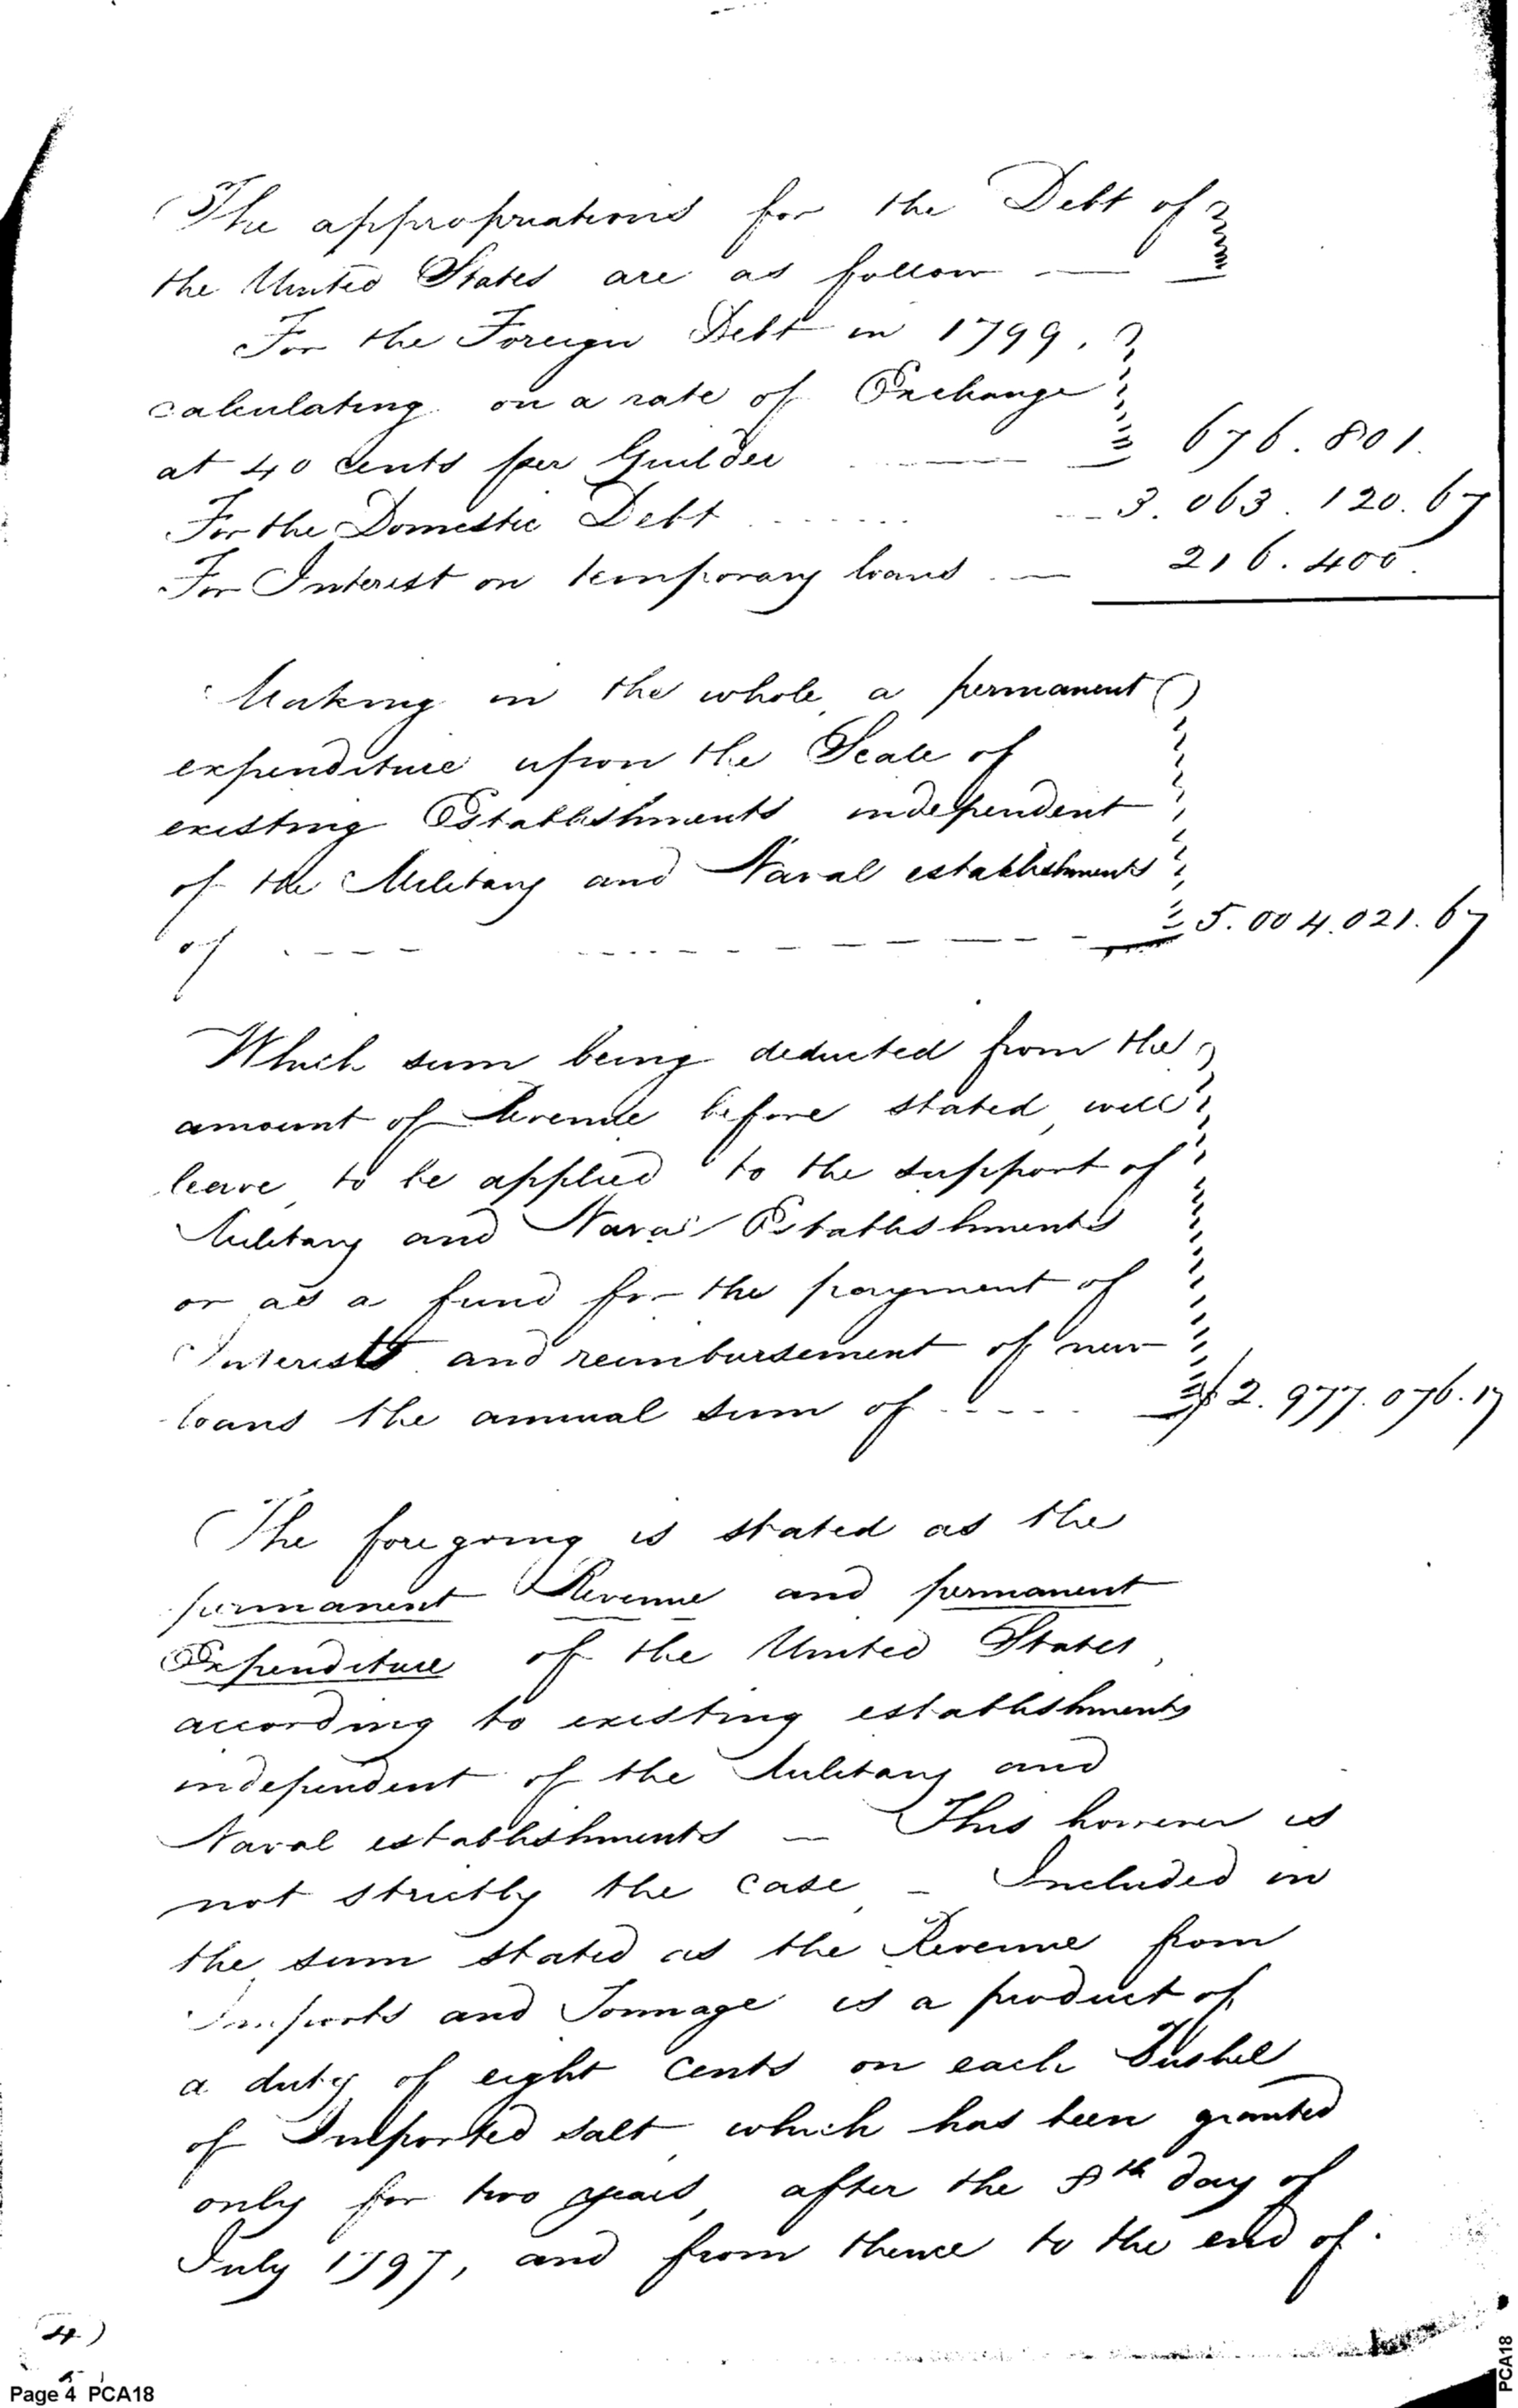 The appropriations for the Debt of
the United States are as follow —
For the Foreign Debt in 1799,
calculating on a rate of Exchange
at 40 cents per Guilder — 676.801.
For the Domestic Debt ...... 3.063.120.67
For Interest on temporary loans — 216.400.
Making in the whole, a permanent
expenditure upon the Scale of
existing Establishments independent
of the Military and Naval establishments
of - - - - 5.004.021.67
Which sum being deducted from the
amount of Revenue before stated, will
leave, to be applied to the support of
Military and Naval Establishments
or as a fund for the payment of
Interest and reimbursement of new
loans the annual sum of - - - - $2.977.076.17
The foregoing is stated as the
permanent Revenue and permanent
Expenditure of the United States,
according to existing establishments
independent of the Military and
Naval establishments — This however is
not strictly the case, — Included in
the sum stated as the Revenue from
Imports and Tonnage is a product of
a duty of eight Cents on each Bushel
of Imported salt, which has been granted
only for two years, after the 8th day of
July 1797, and from thence to the end of.
4)
Page 4 PCA18
PCA18